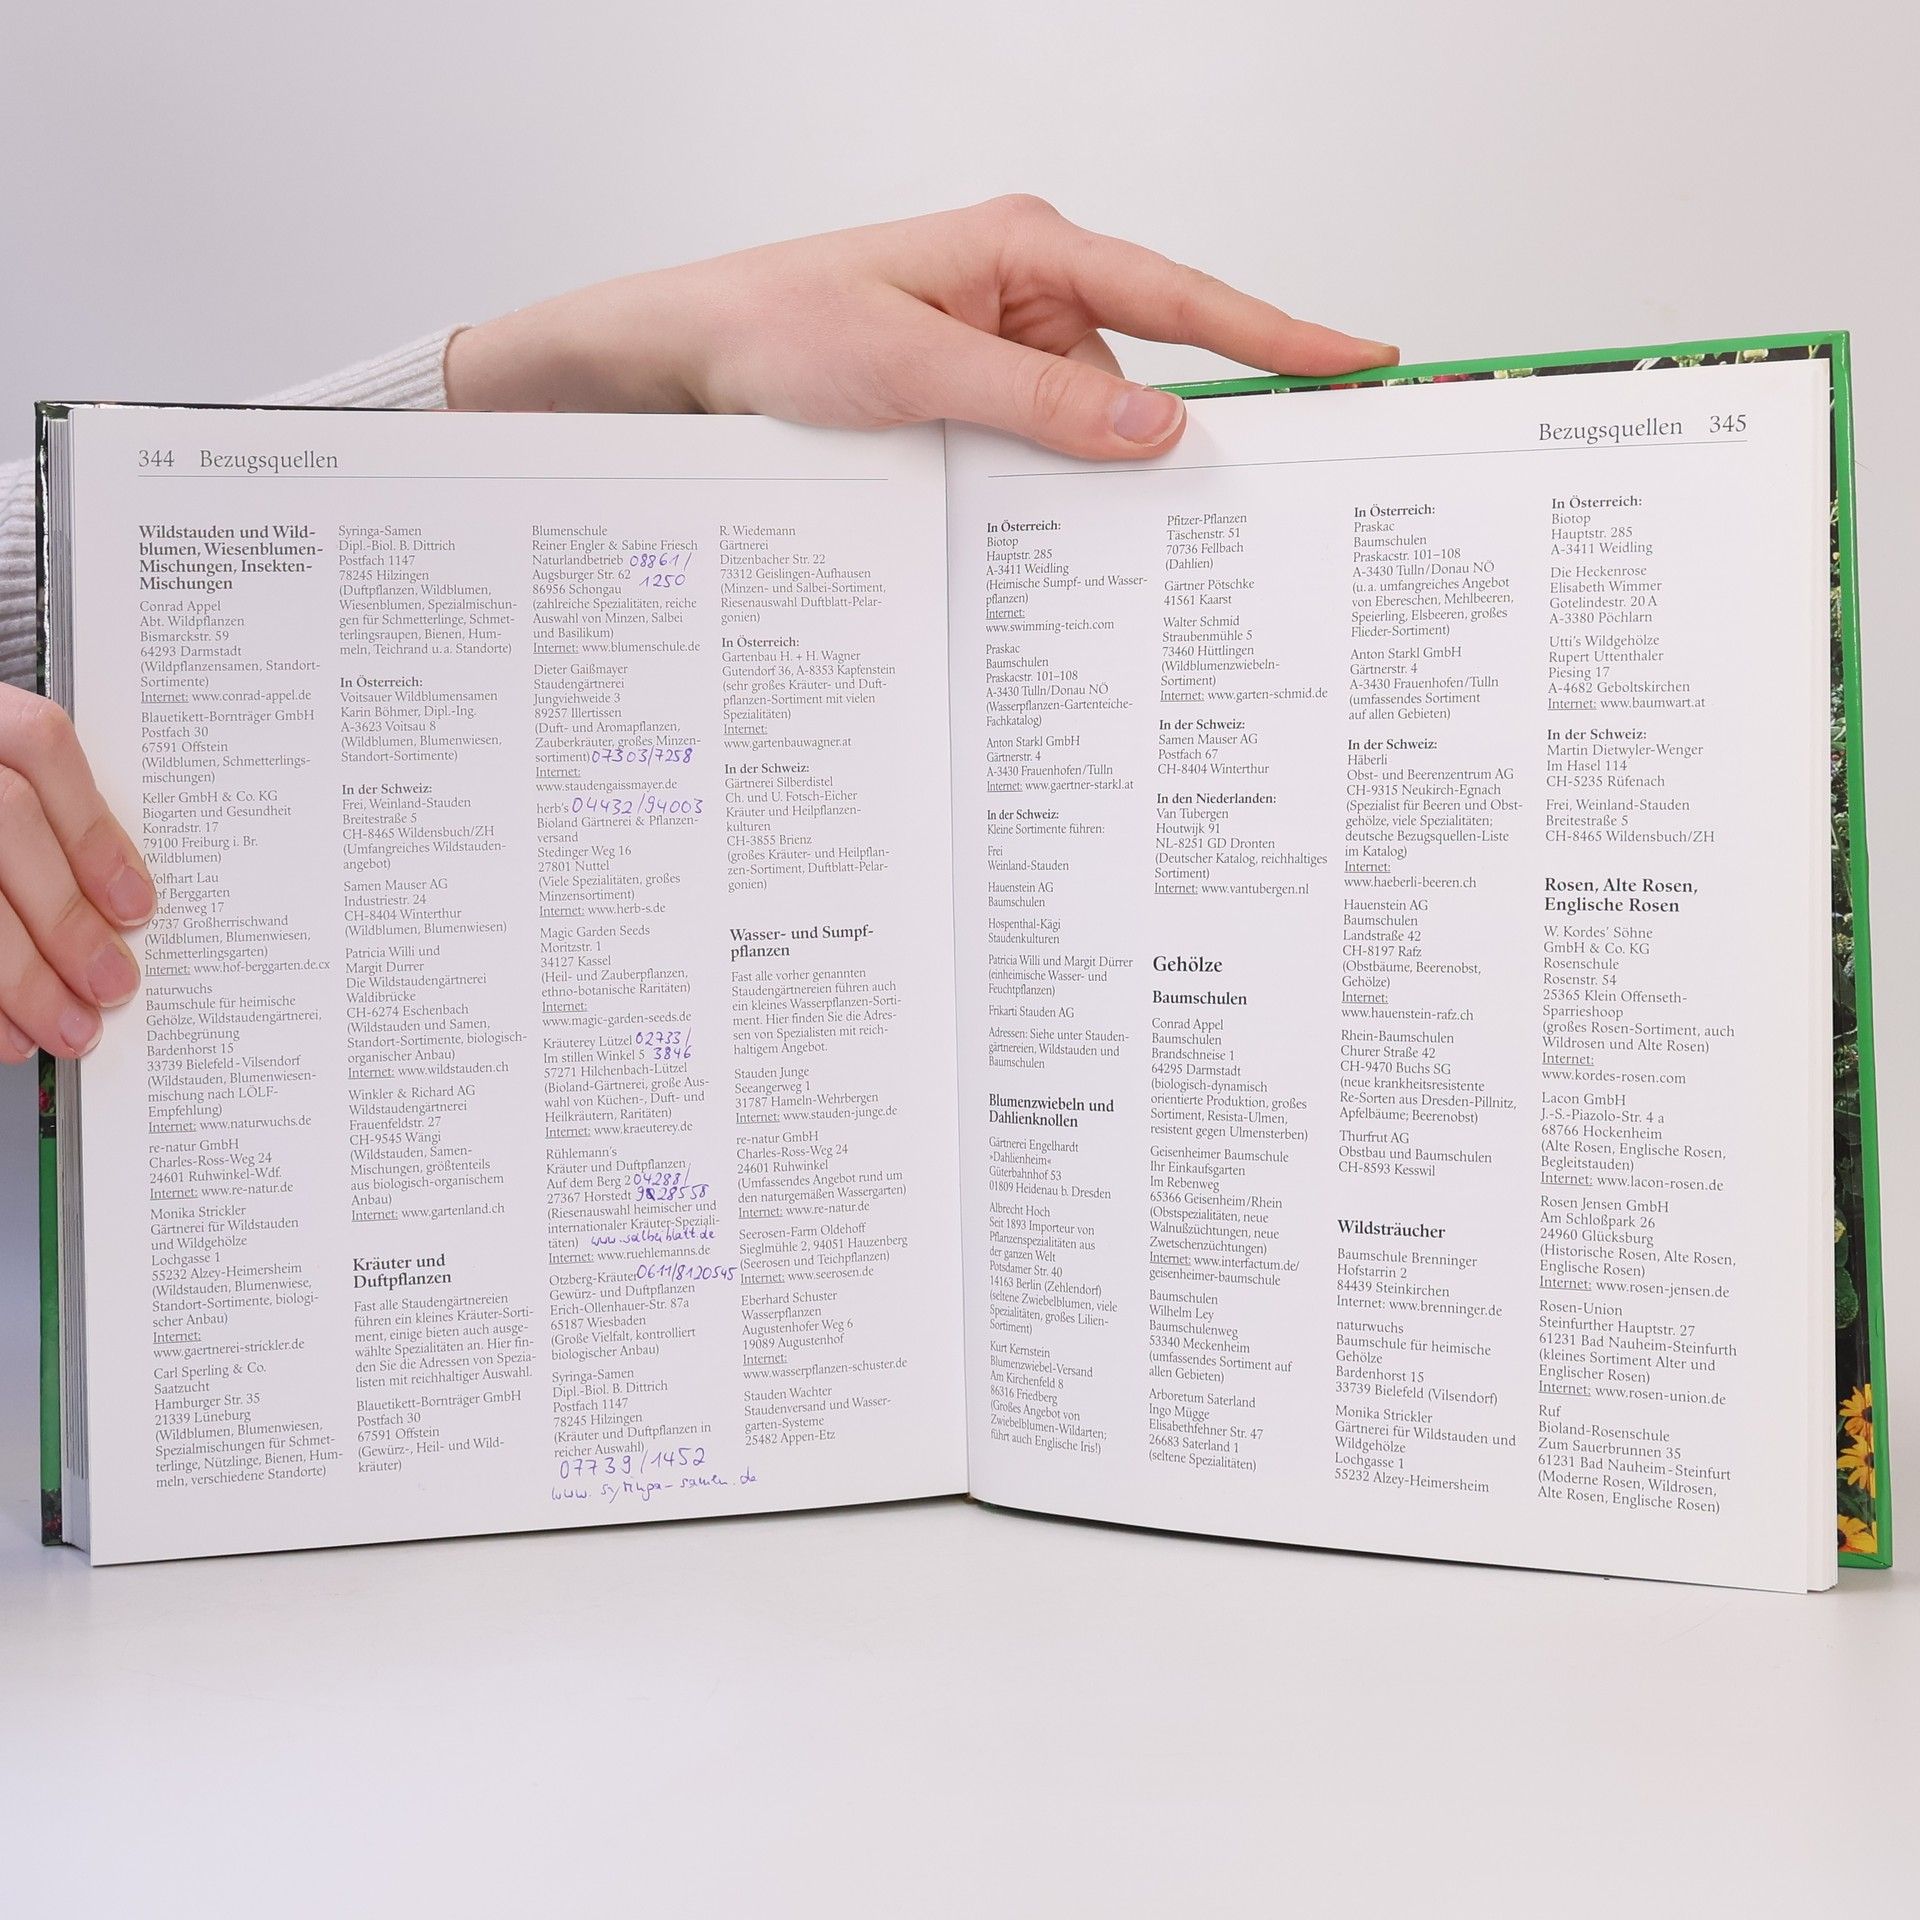 344 Bezugsquellen
Wildstauden und Wild-
blumen, Wiesenblumen-
Mischungen, Insekten-
Mischungen
Conrad Appel
Abt. Wildpflanzen
Bismarckstr. 59
64293 Darmstadt
(Wildpflanzensamen, Standort-
Sortimente)
Internet: www.conrad-appel.de
Blauetikett-Bornträger GmbH
Postfach 30
67591 Offstein
(Wildblumen, Schmetterlings-
mischungen)
Keller GmbH & Co. KG
Biogarten und Gesundheit
Konradstr. 17
79100 Freiburg i. Br.
(Wildblumen)
Lau
Berggarten
17
79737 Großherrischwand
(Wildblumen, Blumenwiesen,
Schmetterlingsgarten)
Internet: www.hof-berggarten.de.cx
naturwuchs
Baumschule für heimische
Gehölze, Wildstaudengärtnerei,
Dachbegrünung
Bardenhorst 15
33739 Bielefeld-Vilsendorf
(Wildstauden, Blumenwiesen-
mischung nach LÖLF-
Empfehlung)
Internet: www.naturwuchs.de
re-natur GmbH
Charles-Ross-Weg 24
24601 Ruhwinkel-Wdf.
Internet: www.re-natur.de
Monika Strickler
Gärtnerei für Wildstauden
und Wildgehölze
Lochgasse 1
55232 Alzey-Heimersheim
(Wildstauden, Blumenwiese,
Standort-Sortimente, biologi-
scher Anbau)
Internet:
www.gaertnerei-strickler.de
Carl Sperling & Co.
Saatzucht
Hamburger Str. 35
21339 Lüneburg
(Wildblumen, Blumenwiesen,
Spezialmischungen für Schmet-
terlinge, Nützlinge, Bienen, Hum-
meln, verschiedene Standorte)
Syringa-Samen
Dipl.-Biol. B. Dittrich
Postfach 1147
78245 Hilzingen
(Duftpflanzen, Wildblumen,
Wiesenblumen, Spezialmischun-
gen für Schmetterlinge, Schmet-
terlingsraupen, Bienen, Hum-
meln, Teichrand u. a. Standorte)
In Österreich:
Voitsauer Wildblumensamen
Karin Böhmer, Dipl.-Ing.
A-3623 Voitsau 8
(Wildblumen, Blumenwiesen,
Standort-Sortimente)
In der Schweiz:
Frei, Weinland-Stauden
Breitestraße 5
CH-8465 Wildensbuch/ZH
(Umfangreiches Wildstauden-
angebot)
Samen Mauser AG
Industriestr. 24
CH-8404 Winterthur
(Wildblumen, Blumenwiesen)
Patricia Willi und
Margit Dürrer
Die Wildstaudengärtnerei
Waldibrücke
CH-6274 Eschenbach
(Wildstauden und Samen,
Standort-Sortimente, biologisch-
organischer Anbau)
Internet: www.wildstauden.ch
Winkler & Richard AG
Wildstaudengärtnerei
Frauenfeldstr. 27
CH-9545 Wängi
(Wildstauden, Samen-
Mischungen, größtenteils
aus biologisch-organischem
Anbau)
Internet: www.gartenland.ch
Kräuter und
Duftpflanzen
Fast alle Staudengärtnereien
führen ein kleines Kräuter-Sorti-
ment, einige bieten auch ausge-
wählte Spezialitäten an. Hier fin-
den Sie die Adressen von Spezia-
listen mit reichhaltiger Auswahl.
Blauetikett-Bornträger GmbH
Postfach 30
67591 Offstein
(Gewürz-, Heil- und Wild-
kräuter)
Blumenschule
Reiner Engler & Sabine Friesch
Naturlandbetrieb 08861/
Augsburger Str. 62 1250
86956 Schongau
(zahlreiche Spezialitäten, reiche
Auswahl von Minzen, Salbei
und Basilikum)
Internet: www.blumenschule.de
Dieter Gaißmayer
Staudengärtnerei
Jungviehweide 3
89257 Illertissen
(Duft- und Aromapflanzen,
Zauberkräuter, großes Minzen-
sortiment) 07303/7258
Internet:
www.staudengaissmayer.de
herb's 04432/94003
Bioland Gärtnerei & Pflanzen-
versand
Stedinger Weg 16
27801 Nuttel
(Viele Spezialitäten, großes
Minzensortiment)
Internet: www.herb-s.de
Magic Garden Seeds
Moritzstr. 1
34127 Kassel
(Heil- und Zauberpflanzen,
ethno-botanische Raritäten)
Internet:
www.magic-garden-seeds.de
Kräuterey Lützel 02733/
Im stillen Winkel 5 3846
57271 Hilchenbach-Lützel
(Bioland-Gärtnerei, große Aus-
wahl von Küchen-, Duft- und
Heilkräutern, Raritäten)
Internet: www.kraeuterey.de
Rühlemann's
Kräuter und Duftpflanzen
Auf dem Berg 2 04288/
27367 Horstedt 928558
(Riesenauswahl heimischer und
internationaler Kräuter-Speziali-
täten) www.salbeiblatt.de
Internet: www.ruehlemanns.de
Otzberg-Kräuter 0611/8120545
Gewürz- und Duftpflanzen
Erich-Ollenhauer-Str. 87a
65187 Wiesbaden
(Große Vielfalt, kontrolliert
biologischer Anbau)
Syringa-Samen
Dipl.-Biol. B. Dittrich
Postfach 1147
78245 Hilzingen
(Kräuter und Duftpflanzen in
reicher Auswahl)
07739/1452
www.syringa-samen.de
R. Wiedemann
Gärtnerei
Ditzenbacher Str. 22
73312 Geislingen-Aufhausen
(Minzen- und Salbei-Sortiment,
Riesenauswahl Duftblatt-Pelar-
gonien)
In Österreich:
Gartenbau H. + H. Wagner
Gutendorf 36, A-8353 Kapfenstein
(sehr großes Kräuter- und Duft-
pflanzen-Sortiment mit vielen
Spezialitäten)
Internet:
www.gartenbauwagner.at
In der Schweiz:
Gärtnerei Silberdistel
Ch. und U. Fotsch-Eicher
Kräuter und Heilpflanzen-
kulturen
CH-3855 Brienz
(großes Kräuter- und Heilpflan-
zen-Sortiment, Duftblatt-Pelar-
gonien)
Wasser- und Sumpf-
pflanzen
Fast alle vorher genannten
Staudengärtnereien führen auch
ein kleines Wasserpflanzen-Sorti-
ment. Hier finden Sie die Adres-
sen von Spezialisten mit reich-
haltigem Angebot.
Stauden Junge
Seeangerweg 1
31787 Hameln-Wehrbergen
Internet: www.stauden-junge.de
re-natur GmbH
Charles-Ross-Weg 24
24601 Ruhwinkel
(Umfassendes Angebot rund um
den naturgemäßen Wassergarten)
Internet: www.re-natur.de
Seerosen-Farm Oldehoff
Sieglmühle 2, 94051 Hauzenberg
(Seerosen und Teichpflanzen)
Internet: www.seerosen.de
Eberhard Schuster
Wasserpflanzen
Augustenhofer Weg 6
19089 Augustenhof
Internet:
www.wasserpflanzen-schuster.de
Stauden Wachter
Staudenversand und Wasser-
garten-Systeme
25482 Appen-Etz
Bezugsquellen 345
In Österreich:
Biotop
Hauptstr. 285
A-3411 Weidling
(Heimische Sumpf- und Wasser-
pflanzen)
Internet:
www.swimming-teich.com
Praskac
Baumschulen
Praskacstr. 101–108
A-3430 Tulln/Donau NÖ
(Wasserpflanzen-Gartenteiche-
Fachkatalog)
Anton Starkl GmbH
Gärtnerstr. 4
A-3430 Frauenhofen/Tulln
Internet: www.gaertner-starkl.at
In der Schweiz:
Kleine Sortimente führen:
Frei
Weinland-Stauden
Hauenstein AG
Baumschulen
Hospenthal-Kägi
Staudenkulturen
Patricia Willi und Margit Dürrer
(einheimische Wasser- und
Feuchtpflanzen)
Frikarti Stauden AG
Adressen: Siehe unter Stauden-
gärtnereien, Wildstauden und
Baumschulen
Blumenzwiebeln und
Dahlienknollen
Gärtnerei Engelhardt
»Dahlienheim«
Güterbahnhof 53
01809 Heidenau b. Dresden
Albrecht Hoch
Seit 1893 Importeur von
Pflanzenspezialitäten aus
der ganzen Welt
Potsdamer Str. 40
14163 Berlin (Zehlendorf)
(seltene Zwiebelblumen, viele
Spezialitäten, großes Lilien-
Sortiment)
Kurt Kernstein
Blumenzwiebel-Versand
Am Kirchenfeld 8
86316 Friedberg
(Großes Angebot von
Zwiebelblumen-Wildarten;
führt auch Englische Iris!)
Pfitzer-Pflanzen
Täschenstr. 51
70736 Fellbach
(Dahlien)
Gärtner Pötschke
41561 Kaarst
Walter Schmid
Straubenmühle 5
73460 Hüttlingen
(Wildblumenzwiebeln-
Sortiment)
Internet: www.garten-schmid.de
In der Schweiz:
Samen Mauser AG
Postfach 67
CH-8404 Winterthur
In den Niederlanden:
Van Tubergen
Houtwijk 91
NL-8251 GD Dronten
(Deutscher Katalog, reichhaltiges
Sortiment)
Internet: www.vantubergen.nl
Gehölze
Baumschulen
Conrad Appel
Baumschulen
Brandschneise 1
64295 Darmstadt
(biologisch-dynamisch
orientierte Produktion, großes
Sortiment, Resista-Ulmen,
resistent gegen Ulmensterben)
Geisenheimer Baumschule
Ihr Einkaufsgarten
Im Rebenweg
65366 Geisenheim/Rhein
(Obstspezialitäten, neue
Walnußzüchtungen, neue
Zwetschenzüchtungen)
Internet: www.interfactum.de/
geisenheimer-baumschule
Baumschulen
Wilhelm Ley
Baumschulenweg
53340 Meckenheim
(umfassendes Sortiment auf
allen Gebieten)
Arboretum Saterland
Ingo Mügge
Elisabethfehner Str. 47
26683 Saterland 1
(seltene Spezialitäten)
In Österreich:
Praskac
Baumschulen
Praskacstr. 101–108
A-3430 Tulln/Donau NÖ
(u. a. umfangreiches Angebot
von Ebereschen, Mehlbeeren,
Speierling, Elsbeeren, großes
Flieder-Sortiment)
Anton Starkl GmbH
Gärtnerstr. 4
A-3430 Frauenhofen/Tulln
(umfassendes Sortiment
auf allen Gebieten)
In der Schweiz:
Häberli
Obst- und Beerenzentrum AG
CH-9315 Neukirch-Egnach
(Spezialist für Beeren und Obst-
gehölze, viele Spezialitäten;
deutsche Bezugsquellen-Liste
im Katalog)
Internet:
www.haeberli-beeren.ch
Hauenstein AG
Baumschulen
Landstraße 42
CH-8197 Rafz
(Obstbäume, Beerenobst,
Gehölze)
Internet:
www.hauenstein-rafz.ch
Rhein-Baumschulen
Churer Straße 42
CH-9470 Buchs SG
(neue krankheitsresistente
Re-Sorten aus Dresden-Pillnitz,
Apfelbäume; Beerenobst)
Thurfrut AG
Obstbau und Baumschulen
CH-8593 Kesswil
Wildsträucher
Baumschule Brenninger
Hofstarrin 2
84439 Steinkirchen
Internet: www.brenninger.de
naturwuchs
Baumschule für heimische
Gehölze
Bardenhorst 15
33739 Bielefeld (Vilsendorf)
Monika Strickler
Gärtnerei für Wildstauden und
Wildgehölze
Lochgasse 1
55232 Alzey-Heimersheim
In Österreich:
Biotop
Hauptstr. 285
A-3411 Weidling
Die Heckenrose
Elisabeth Wimmer
Gotelindestr. 20 A
A-3380 Pöchlarn
Utti's Wildgehölze
Rupert Uttenthaler
Piesing 17
A-4682 Geboltskirchen
Internet: www.baumwart.at
In der Schweiz:
Martin Dietwyler-Wenger
Im Hasel 114
CH-5235 Rüfenach
Frei, Weinland-Stauden
Breitestraße 5
CH-8465 Wildensbuch/ZH
Rosen, Alte Rosen,
Englische Rosen
W. Kordes' Söhne
GmbH & Co. KG
Rosenschule
Rosenstr. 54
25365 Klein Offenseth-
Sparrieshoop
(großes Rosen-Sortiment, auch
Wildrosen und Alte Rosen)
Internet:
www.kordes-rosen.com
Lacon GmbH
J.-S.-Piazolo-Str. 4 a
68766 Hockenheim
(Alte Rosen, Englische Rosen,
Begleitstauden)
Internet: www.lacon-rosen.de
Rosen Jensen GmbH
Am Schloßpark 26
24960 Glücksburg
(Historische Rosen, Alte Rosen,
Englische Rosen)
Internet: www.rosen-jensen.de
Rosen-Union
Steinfurther Hauptstr. 27
61231 Bad Nauheim-Steinfurth
(kleines Sortiment Alter und
Englischer Rosen)
Internet: www.rosen-union.de
Ruf
Bioland-Rosenschule
Zum Sauerbrunnen 35
61231 Bad Nauheim-Steinfurt
(Moderne Rosen, Wildrosen,
Alte Rosen, Englische Rosen)